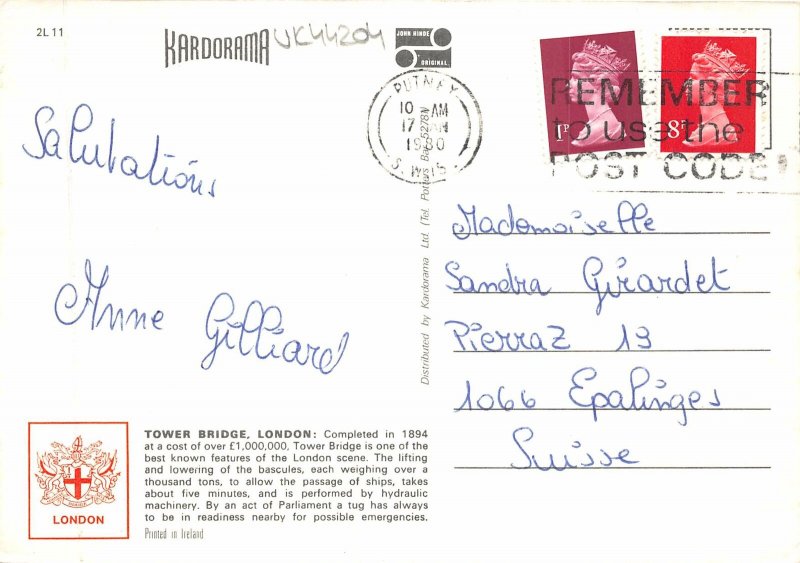 2L 11
KARDORAMA UK44204
JOHN HINDE
ORIGINAL
PUTNEY
10 AM
17
S.W.15
1P
8P
REMEMBER
to use the
POST CODE
Salutations
Anne Gilliard
Distributed by Kardorama Ltd. (Tel. Potters Bar 52781)
Mademoiselle
Sandra Girardet
Pierraz 13
1066 Epalinges
Suisse
LONDON
TOWER BRIDGE, LONDON: Completed in 1894
at a cost of over £1,000,000, Tower Bridge is one of the
best known features of the London scene. The lifting
and lowering of the bascules, each weighing over a
thousand tons, to allow the passage of ships, takes
about five minutes, and is performed by hydraulic
machinery. By an act of Parliament a tug has always
to be in readiness nearby for possible emergencies.
Printed in Ireland